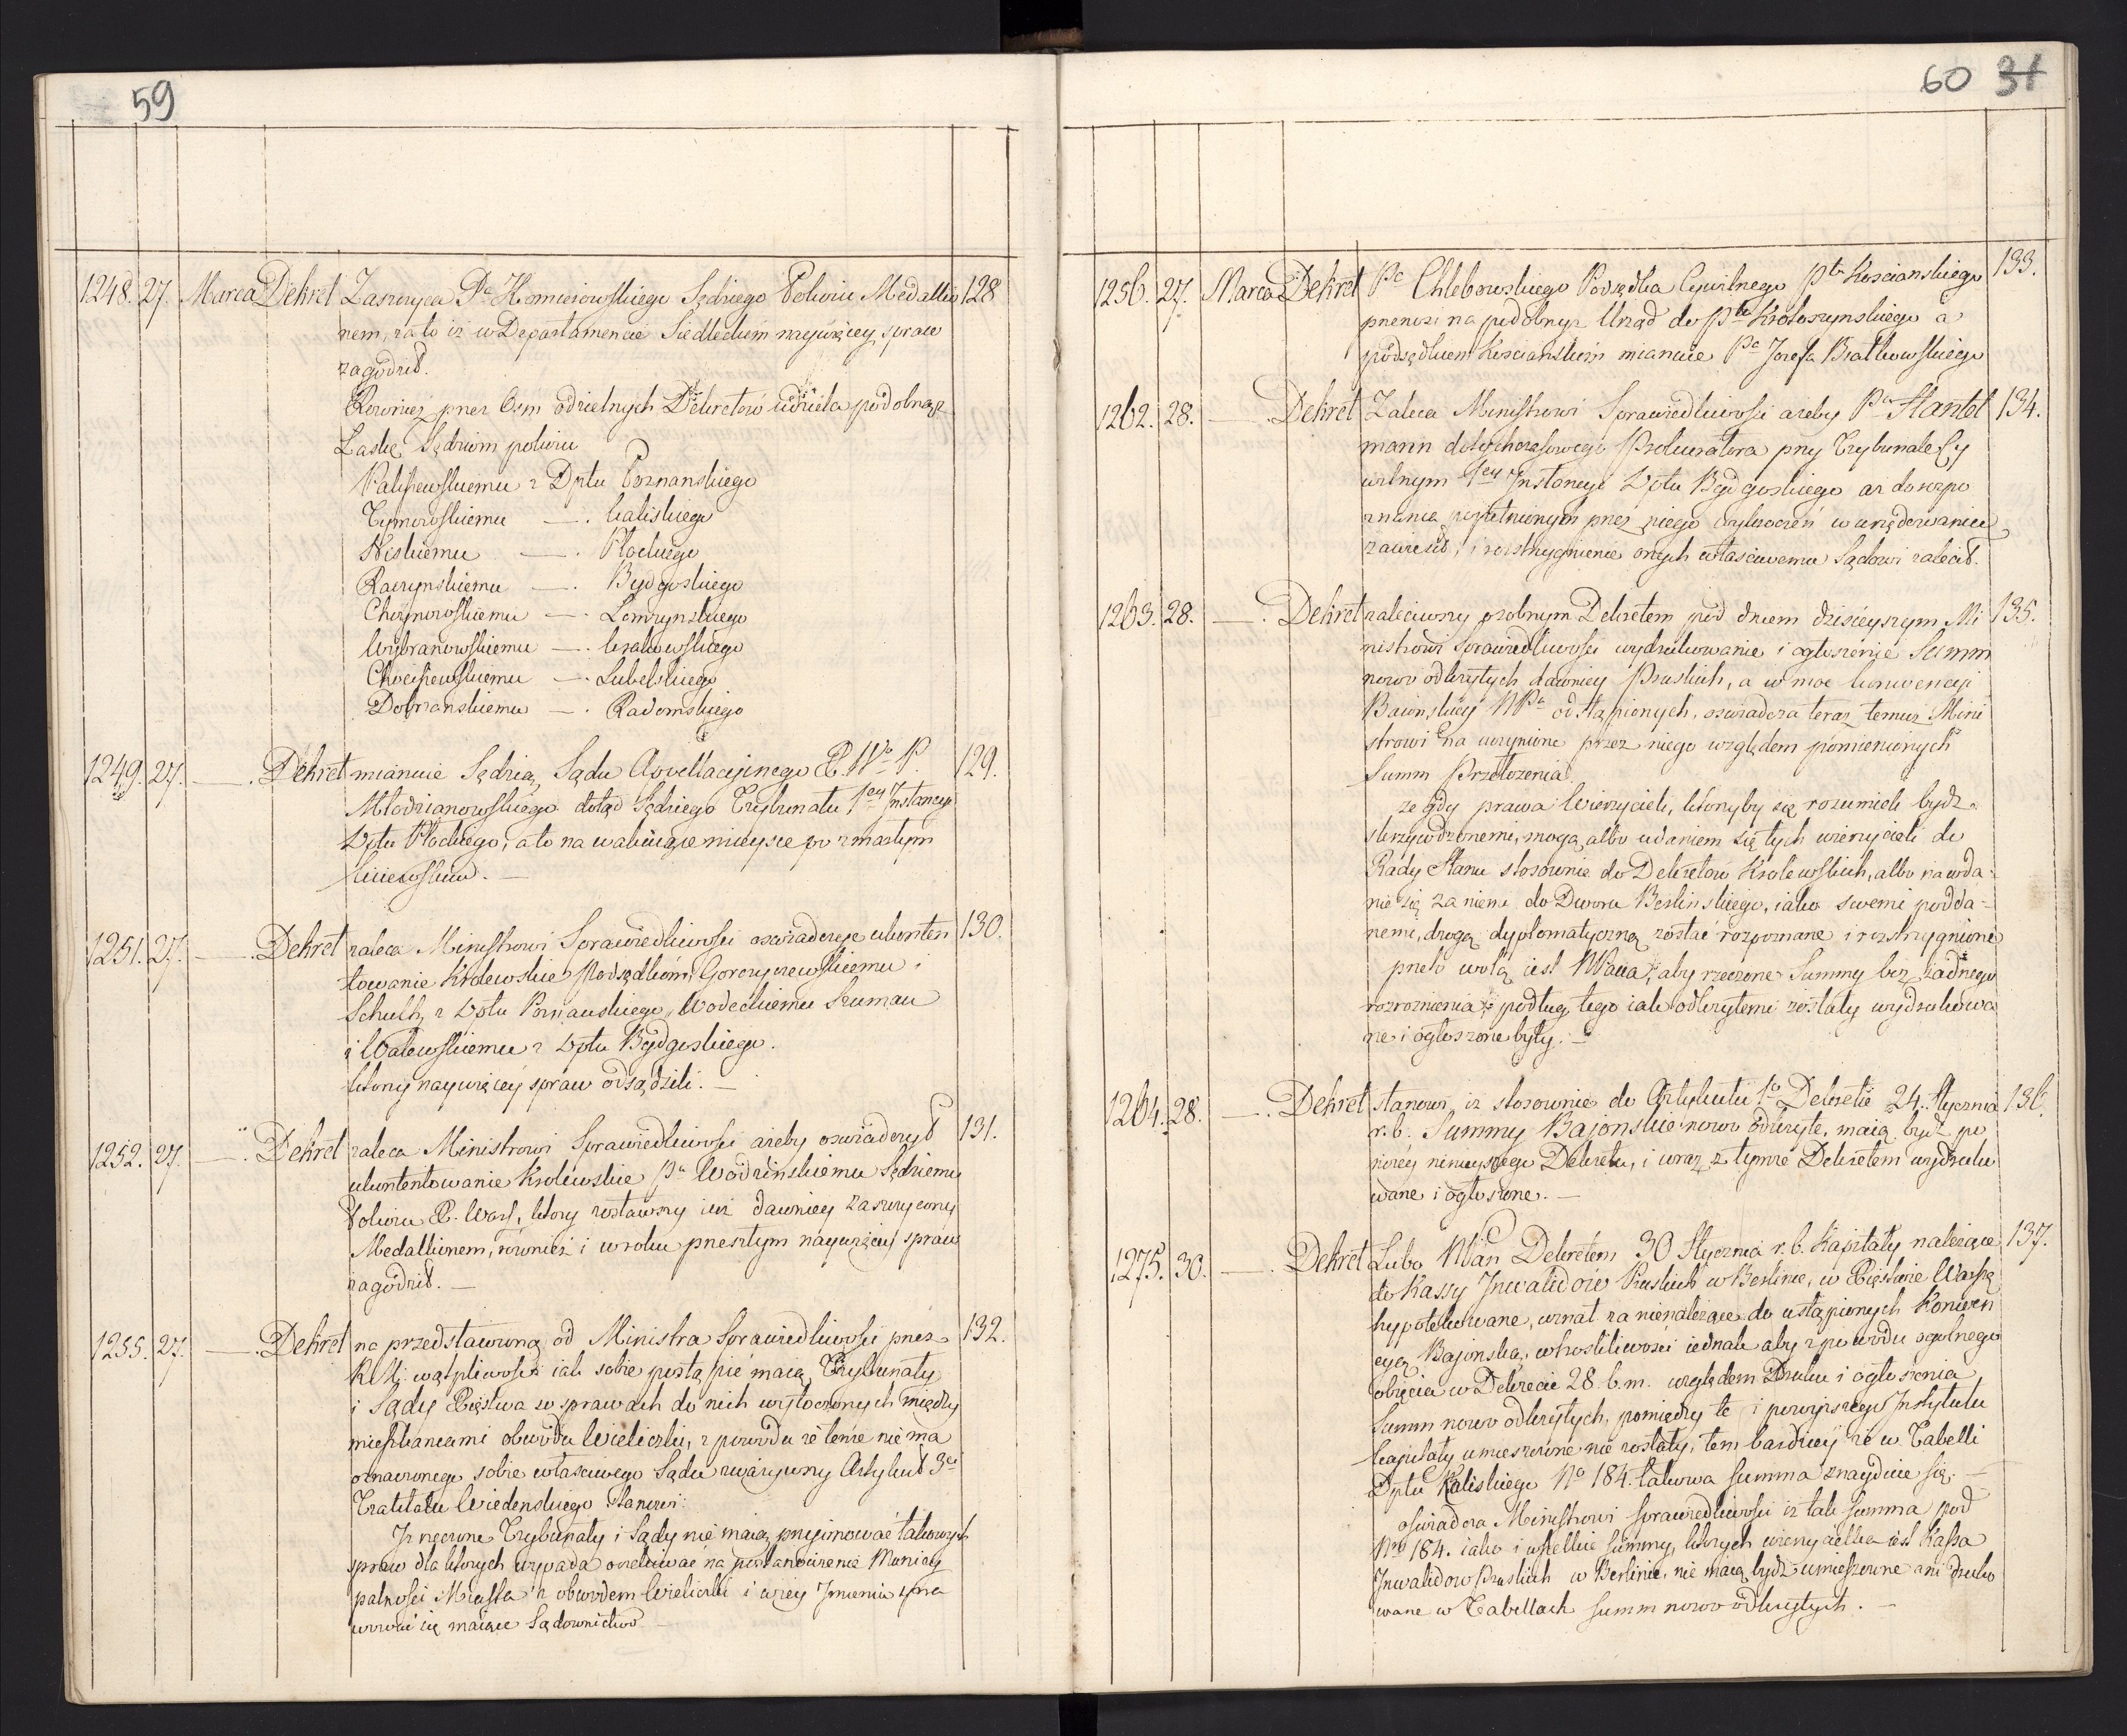 59
1248. 27. Marca Dekret Zaszczyca Pa Komierowskiego Sędziego Pokoiu Medallio 128
nem, za to iż w Departamencie Siedleckim naywięcey spraw
zagodził.
Rownież przez Osm oddzielnych Dekretow udziela podobnąż
Łaskę Sędziom pokoiu
Paliszewskiemu z Dptu Poznanskiego
Tymowskiemu — . Kaliskiego
Niskiemu — . Płockiego
Raczynskiemu — . Bydgoskiego
Choynowskiemu — . Łomzynskiego
Wybranowskiemu — . Krakowskiego
Chociszewskiemu — . Lubelskiego
Dobrzanskiemu — . Radomskiego
1249. 27. — . Dekret mianuie Sędzią Sądu Appellacyinego X. Wo P. 129.
Młodzianowskiego dotąd Sędziego Trybunału 1ey Instancyi
Dptu Płockiego, a to na wakuiące mieysce po zmarłym
1251. 27. — . Dekret zaleca Ministrowi Sprawiedliwosci oswiadczyc ukonten 130.
towanie Krolewskie Podsędkom, Gorczyczewskiemu i
Schultz z Dptu Poznanskiego, Wodeckiemu Szuman
i Walewskiemu z Dptu Bydgoskiego.
ktorzy naywięcey spraw odsądzili. —
1252. 27. — . Dekret zaleca Ministrowi Sprawiedliwosci ażeby oswiadczył 131.
ukontentowanie Krolewskie Pu Wodzinskiemu Sędziemu
Pokoiu X. Warsz. ktory zostawszy iuż dawniey zaszczycony
Medallionem, rownież i w roku przeszłym naywięcey spraw
zagodził. —
1255. 27. — . Dekret na przedstawioną od Ministra Sprawiedliwosci przez 132.
RM: wątpliwosc iak sobie postąpić maią Trybunały
i Sądy Xięstwa w sprawach do nich wytoczonych między
mieszkancami obwodu Wieliczki, z powodu że tenże nie ma
oznaczonego sobie własciwego Sądu zważywszy Artykuł 3ci
Traktatu Wiedenskiego stanowi:
Iż rzeczone Trybunały i Sądy nie maią przyimować takowych
spraw dla ktorych wypada oczekiwać na postanowienie Municy
palnosci Miasta z obwodem Wieliczki i w iey Imieniu spra
wować się maiące Sądownictwo —
60 31
1256. 27. Marca Dekret Pa Chlebowskiego Podsędka Cywilnego Ptu Koscianskiego 133.
przenosi na podobnyż Urząd do Ptu Krotoszynskiego a
podsędkiem Koscianskim mianuie Pa Jozefa Bratkowskiego
1262. 28. — Dekret Zaleca Ministrowi Sprawiedliwosci ażeby Pa Hantel 134.
mann dotychczasowego Prokuratora przy Trybunale Cy
wilnym 1ey Instancyi Dptu Bydgoskiego aż do rozpo
znania popełnionych przez niego wykroczeń w urzędowaniu
zawiesił, i rozstrzygnienie onych własciwemu Sądowi zalecił.
1263. 28. — . Dekret zaleciwszy osobnym Dekretem pod dniem dzisieyszym Mi 135.
nistrowi Sprawiedliwosci wydrukowanie i ogłoszenie Summ
nowo odkrytych dawniey Pruskich, a w moc konwencyi
Baionskiey NPu odstąpionych, oswiadcza teraz temuż Mini
strowi na uczynione przez niego względem pomienionych
Summ Przełozenia.
że gdy prawa Wierzycieli, ktorzyby się rozumieli bydz
skrzywdzonemi, mogą albo udaniem się tych wierzycieli do
Rady Stanu stosownie do Dekretow Krolewskich, albo na wda=
nie się za niemi do Dworu Berlinskiego, iako swemi podda=
nemi, drogą dyplomatyczną zostać rozpoznane i rozstrzygnione
przeto wolą iest NPana, aby rzeczone Summy bez żadnego
rozroznienia podług tego iak odkrytemi zostały wydrukowa
ne i ogłoszone były. —
1264. 28. — . Dekret stanowi iż stosownie do Artykułu 1o Dekretu 24. Stycznia 136.
r. b. Summy Bajonskie nowo odkryte, maią bydz po
nowey ninieyszego Dekretu, i wraz z tymże Dekretem wydruko
wane i ogłoszone. —
1275. 30. — . Dekret Lubo NPan Dekretem 30 Stycznia r. b. Kapitały należące 137.
do Kassy Inwalidow Pruskich w Berlinie, w Xięstwie Warsz.
hypotekowane, uznał za nienależące do ustąpionych Konwen
cyą Bajonską, w troskliwosci iednak aby z powodu ogolnego
obięcia w Dekrecie 28 b. m. względem Druku i ogłoszenia
Summ nowo odkrytych, pomiędzy te i powyższego Instytutu
kapitały umieszczone nie zostały, tem bardziey że w Tabelli
Dptu Kaliskiego No 184. takowa Summa znayduie się. —
Oswiadcza Ministrowi Sprawiedliwosci iż tak Summa pod
Nro 184. iako i wszelkie Summy, ktorych wierzycielką iest Kassa
Inwalidow Pruskich w Berlinie, nie maią bydz umieszczone ani druko
wane w Tabellach Summ nowo odkrytych. —